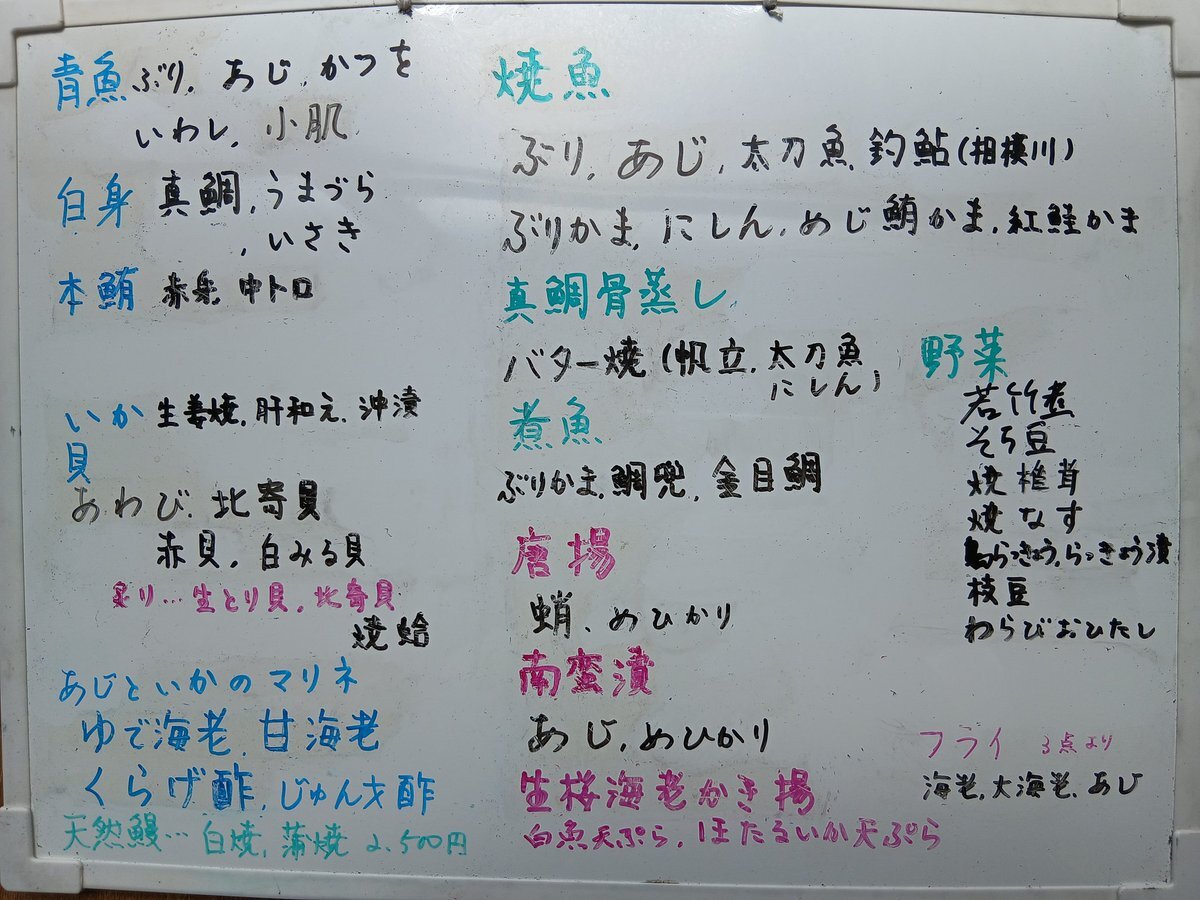 青魚 ぶり、あじ、かつを
いわし、小肌
白身 真鯛、うまづら
、いさき
本鮪 赤身、中トロ
いか 生姜焼、肝和え、沖漬
貝
あわび、北寄貝
赤貝、白みる貝
炙り…生とり貝、北寄貝
焼蛤
あじといかのマリネ
ゆで海老、甘海老
くらげ酢、じゅん才酢
天然鰻…白焼、蒲焼 2,500円
焼魚
ぶり、あじ、太刀魚、釣鮎(相模川)
ぶりかま、にしん、めじ鮪かま、紅鮭かま
真鯛骨蒸し
バター焼(帆立、太刀魚
にしん)
煮魚
ぶりかま、鯛兜、金目鯛
唐揚
蛸、めひかり
南蛮漬
あじ、めひかり
生桜海老かき揚
白魚天ぷら、ほたるいか天ぷら
野菜
若竹煮
そら豆
焼椎茸
焼なす
島らっきょう、らっきょう漬
枝豆
わらびおひたし
フライ 3点より
海老、大海老、あじ